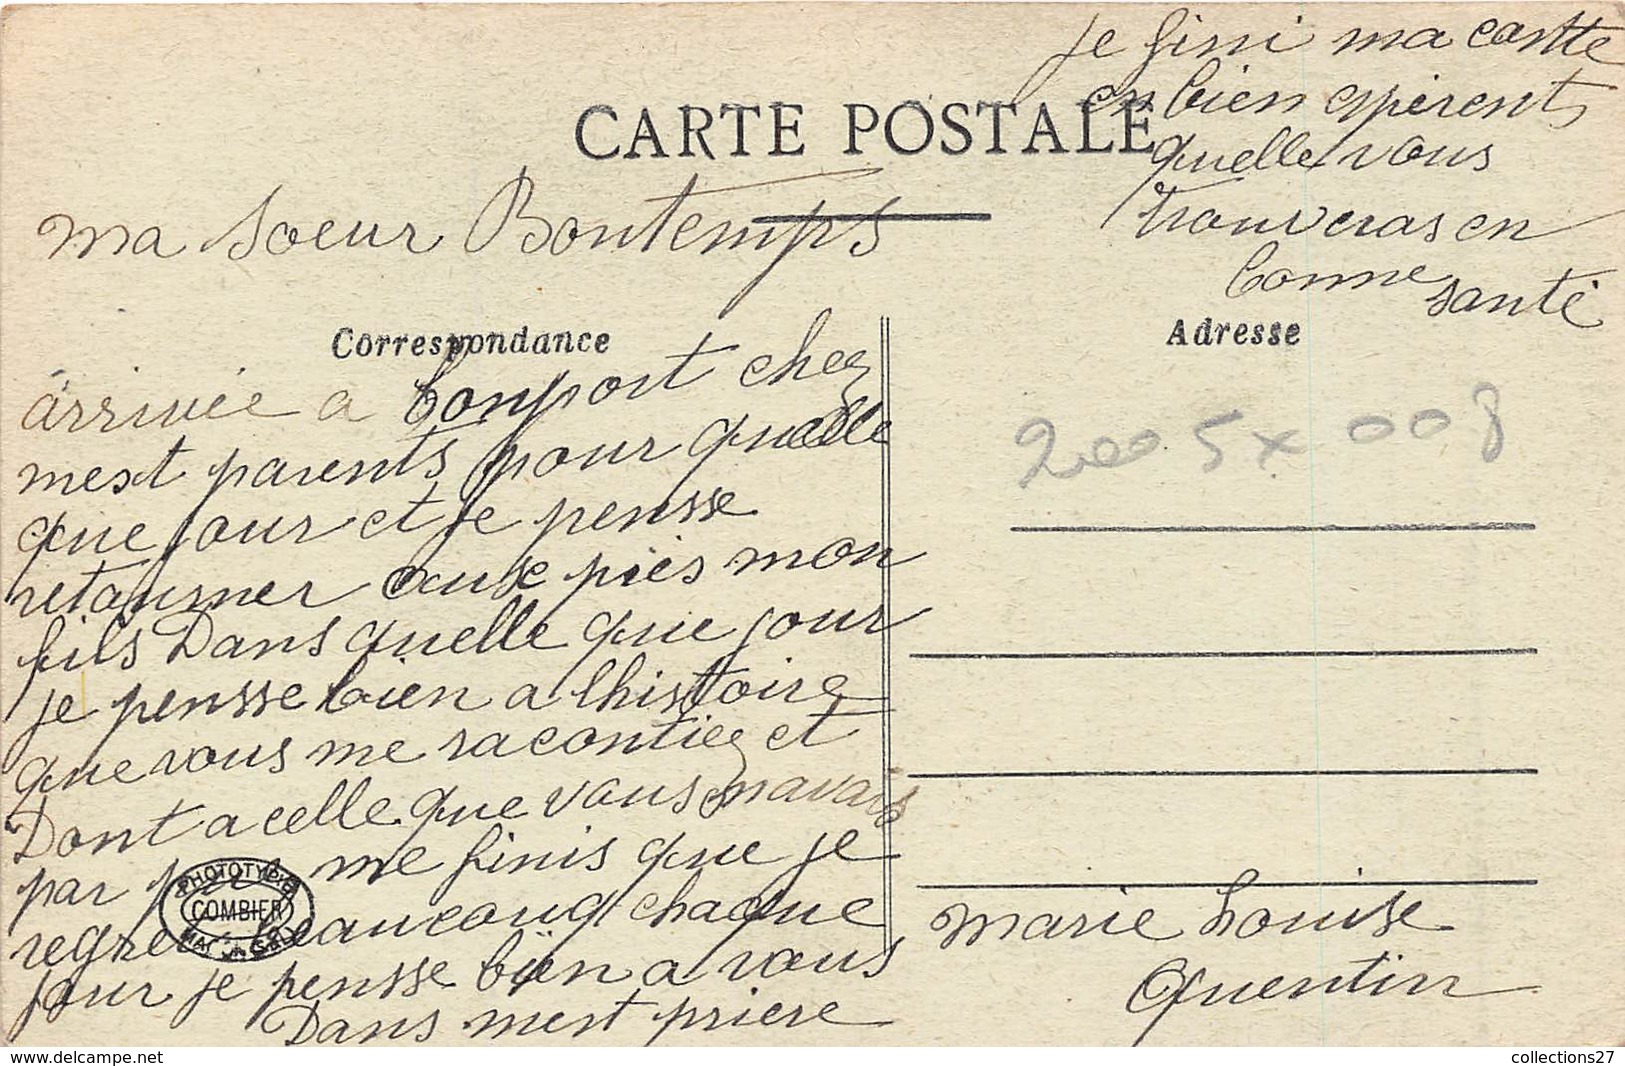 CARTE POSTALE
ma soeur Bontemps
Correspondance
arrivée a bonport chez
mest parents pour quelle
que jour et je pensse
retourner ause piés mon
fils Dans quelle que jour
je pensse bien a lhistoire
que vous me racontiez et
Dont a celle que vous mavais
par me finis que je
beaucoup chaque
jour je pensse bien a vous
Dans mest priere
je fini ma cartte
en bien esperent
quelle vous
trouveras en
bonne santé
Adresse
2005 x 008
marie Louise
Quentin
PHOTOTYPIE
COMBIER
MACON
collections27